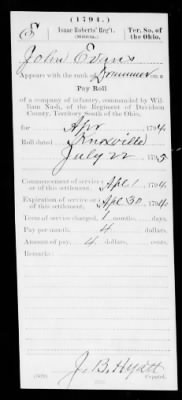 (1794.)
E Isaac Roberts' Reg't. Ter. So. of
(MILITIA.) the Ohio.
John Evans
Appears with the rank of Drummer on
Pay Roll
of a company of infantry, commanded by Wil-
liam Nash, of the Regiment of Davidson
County, Territory South of the Ohio,
for Apr 1794.
Roll dated Knoxville
July 22 1795
Commencement of service
or of this settlement, Apl 1 1794.
Expiration of service or
of this settlement, Apl 30 1794.
Term of service charged, 1 months, days.
Pay per month, 4 dollars,
Amount of pay, 4 dollars, cents.
Remarks:
J. B. Hyatt
Copyist.